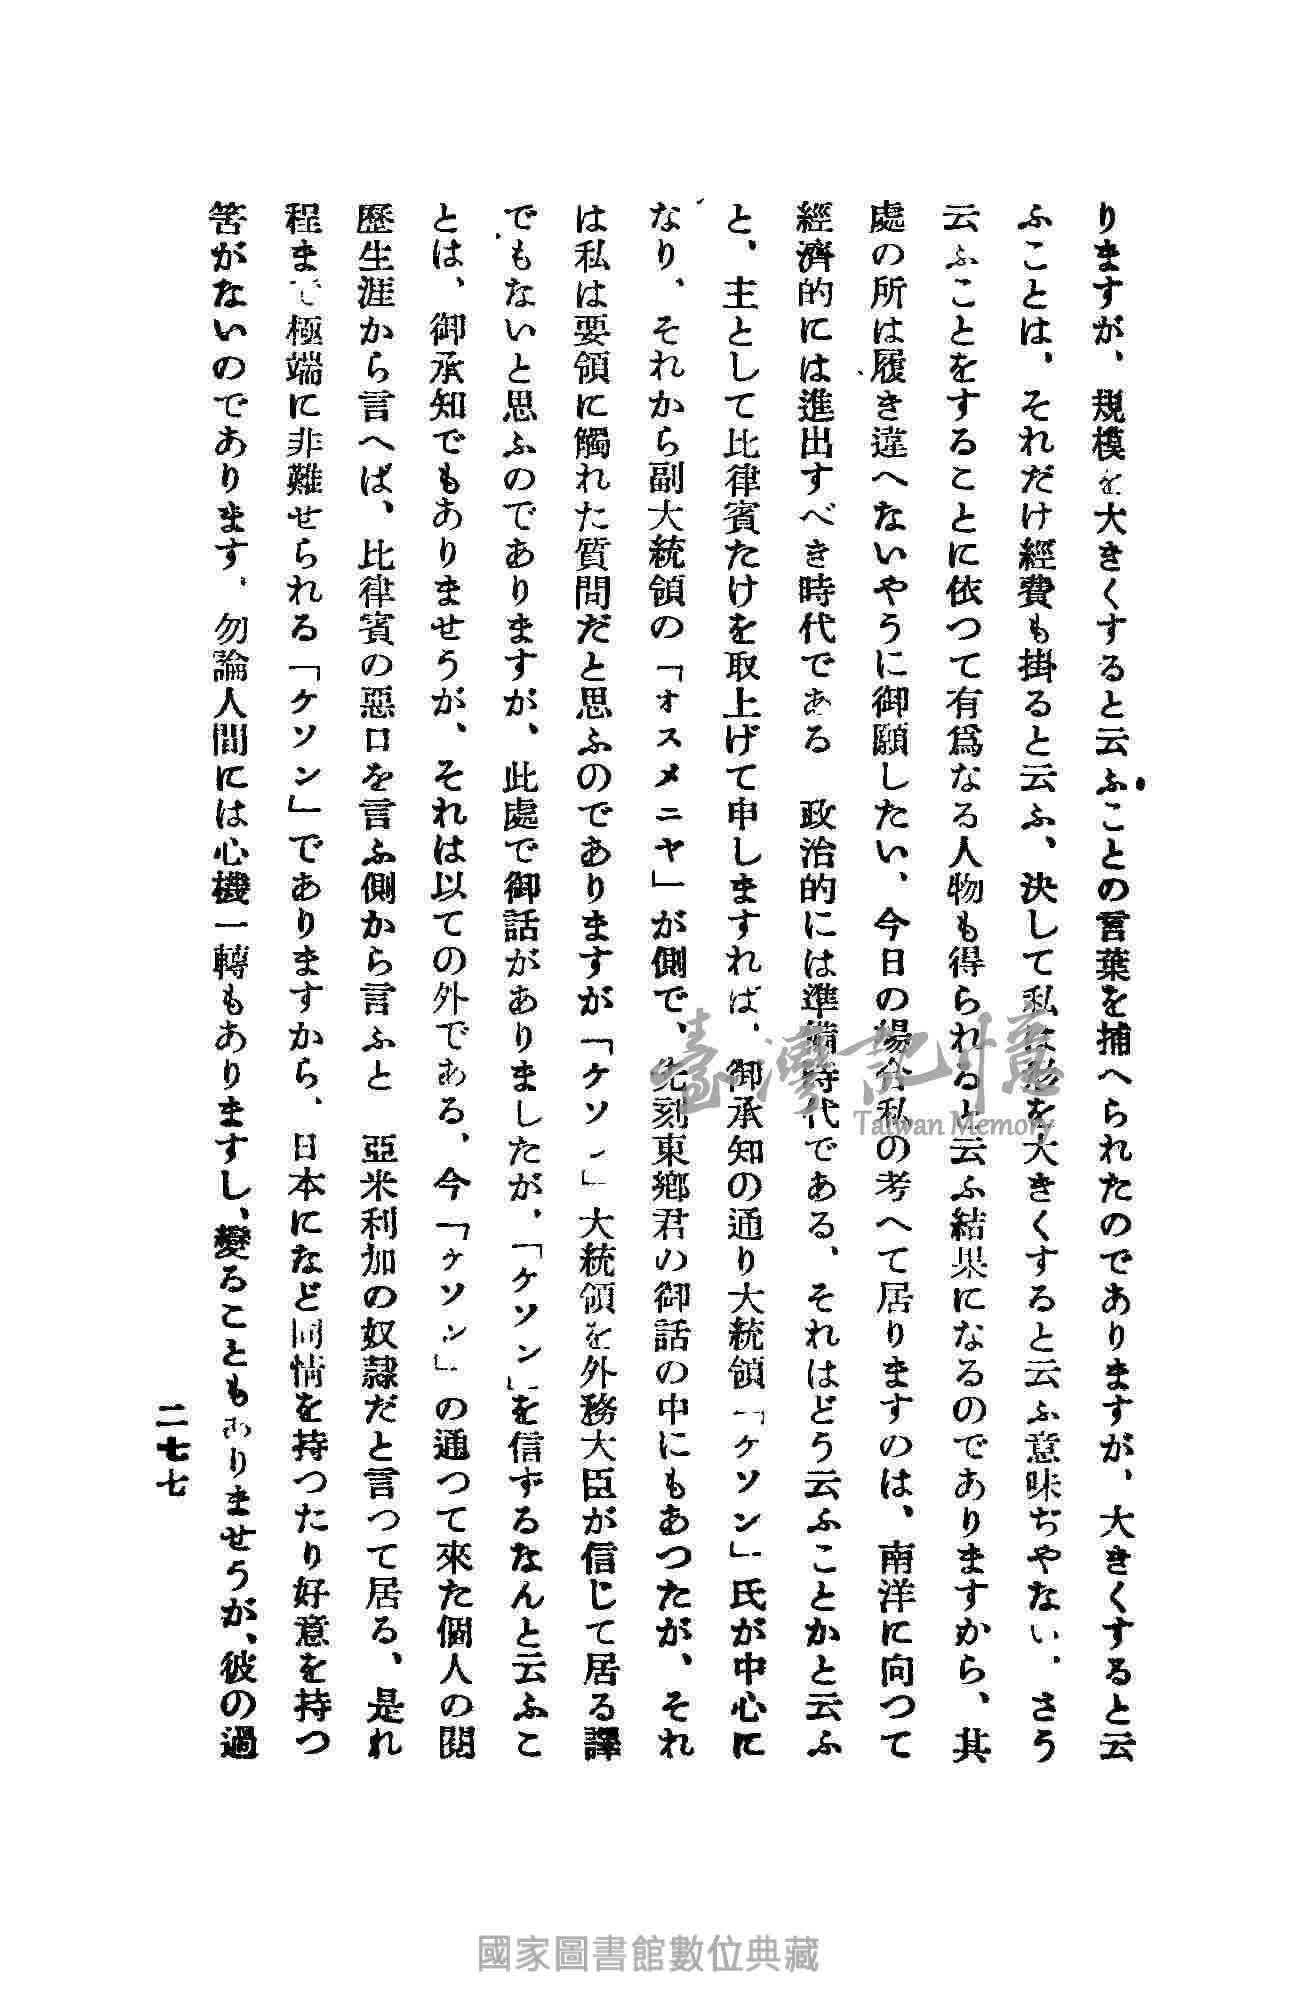 りますが、規模を大きくすると云ふことの言葉を捕へられたのでありますが、大きくすると云
ふことは、それだけ經費も掛ると云ふ、決して私は形を大きくすると云ふ意味ぢやない、さう
云ふことをすることに依つて有爲なる人物も得られると云ふ結果になるのでありますから、其
處の所は履き違へないやうに御願したい、今日の場合私の考へて居りますのは、南洋に向つて
經濟的には進出すべき時代である　政治的には準備時代である、それはどう云ふことかと云ふ
と、主として比律賓たけを取上げて申しますれば、御承知の通り大統領「ケソン」氏が中心に
なり、それから副大統領の「オスメニヤ」が側で、先刻東鄕君の御話の中にもあつたが、それ
は私は要領に觸れた質問だと思ふのでありますが「ケソン」大統領を外務大臣が信じて居る譯
でもないと思ふのでありますが、此處で御話がありましたが、「ケソン」を信ずるなんと云ふこ
とは、御承知でもありませうが、それは以ての外である、今「ケソン」の通つて來た個人の閱
歷生涯から言へば、比律賓の惡口を言ふ側から言ふと　亞米利加の奴隷だと言つて居る、是れ
程まで極端に非難せられる「ケソン」でありますから、日本になど同情を持つたり好意を持つ
筈がないのであります、勿論人間には心機一轉もありますし、變ることもありませうが、彼の過
二七七
臺灣記憶
Taiwan Memory
國家圖書館數位典藏